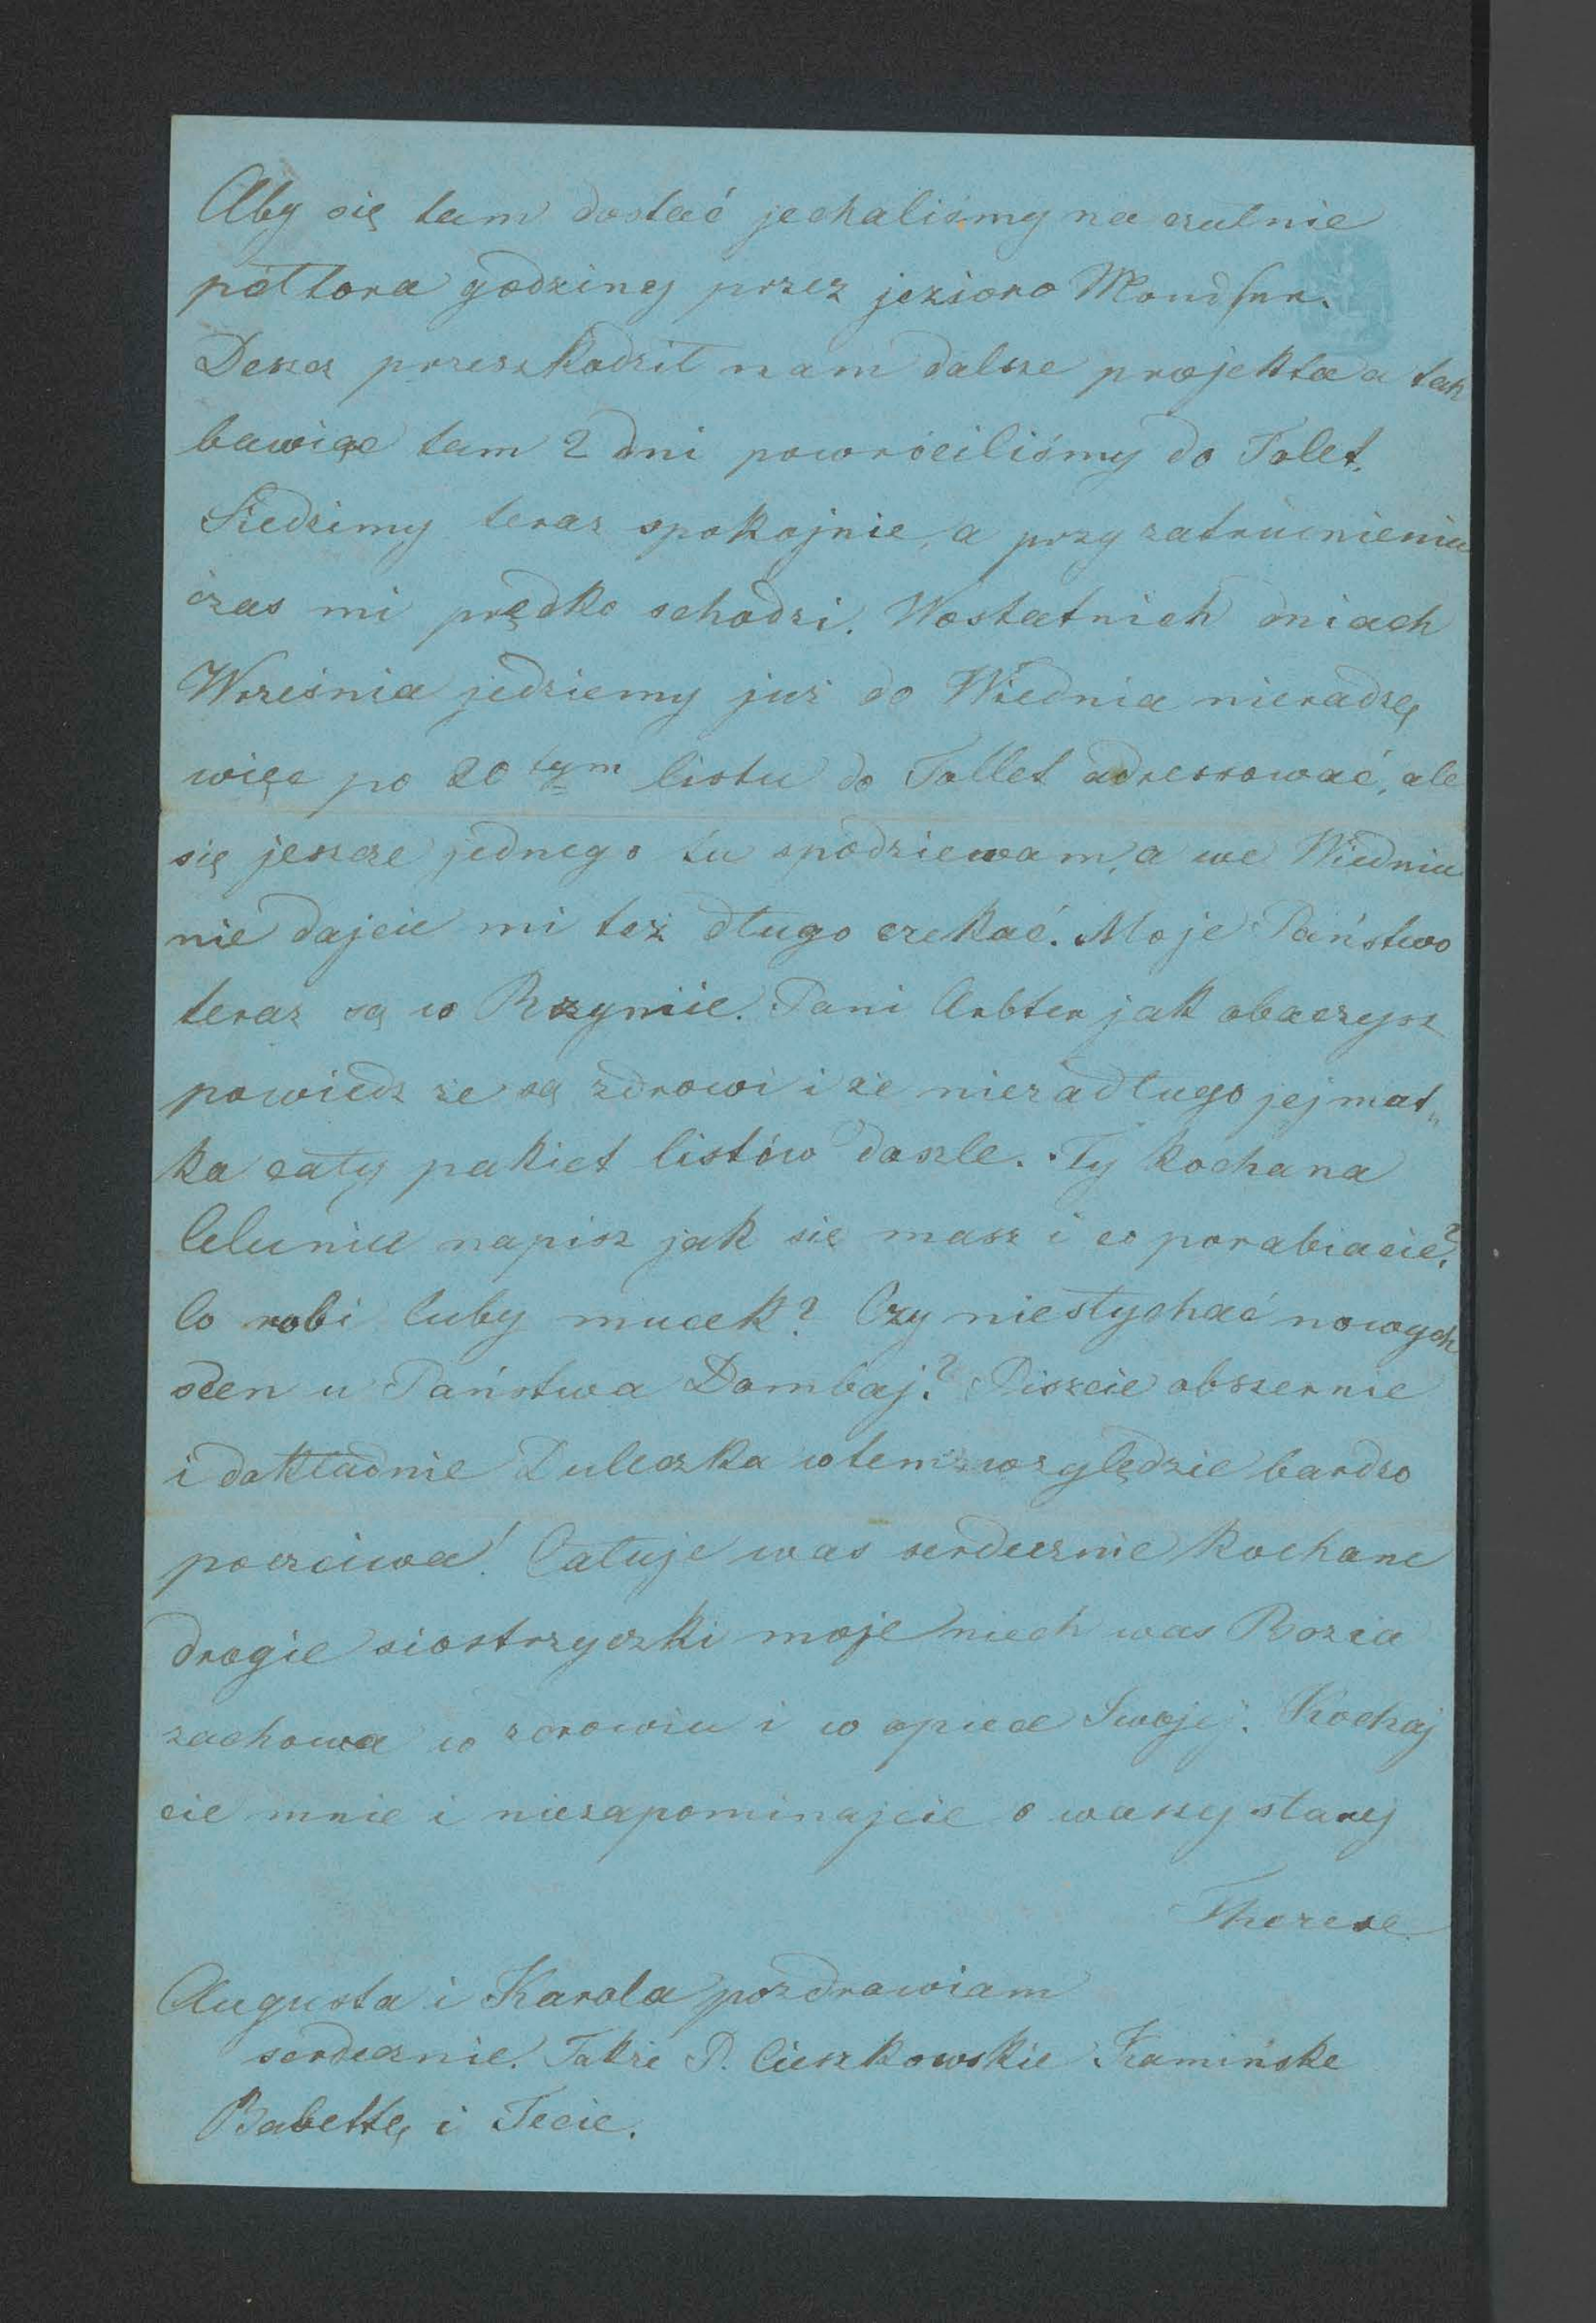 Aby się tam dostać jechaliśmy na czułnie
półtora godziny przez jezioro Mondsee.
Deszcz przeszkodził nam dalsze projekta a tak
bawiąc tam 2 dni powróciliśmy do Tolet.
Siedzimy teraz spokojnie, a przy zatrudnieniu
czas mi prędko schodzi. Wostatnich dniach
Września jedziemy już do Wiednia nieradzę
więc po 20tym listu do Tollet adressować, ale
się jeszcze jednego tu spodziewam, a we Wiedniu
nie dajcie mi też długo czekać. Moje Państwo
teraz są w Rzymie. Pani Arbter jak obaczysz
powiedz że są zdrowi i że niezadługo jej mat„
ka cały pakiet listów doszle. Ty kochana
Celuniu napisz jak się masz i co porabiacie?
Co robi luby mucek? Czy niesłychać nowych
scen u Państwa Dombaj? Piszcie obszernie
i dokładnie Duleczka wtem względzie bardzo
poczciwa! Całuje was serdecznie kochane
drogie siostrzyczki moje niech was Bozia
zachowa w zdrowiu i w opiece Swojej. Kochaj
cie mnie i niezapominajcie o waszej starej
Therese
Augusta i Karola pozdrawiam
serdecznie. Także P. Cieszkowskie Kamińske
Babettę i Tecie.